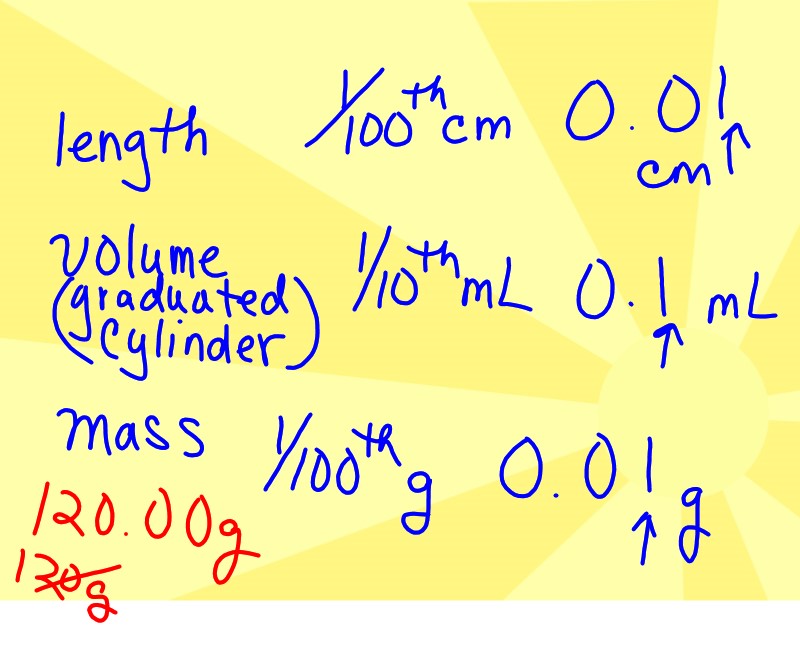 length 1/100th cm 0.01 cm ↑
volume (graduated cylinder) 1/10th mL 0.1 mL
↑
mass 1/100th g 0.01 g
↑
120.00g
120g